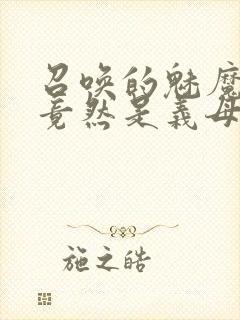 召唤的魅魔
竟然是义母
施之皓